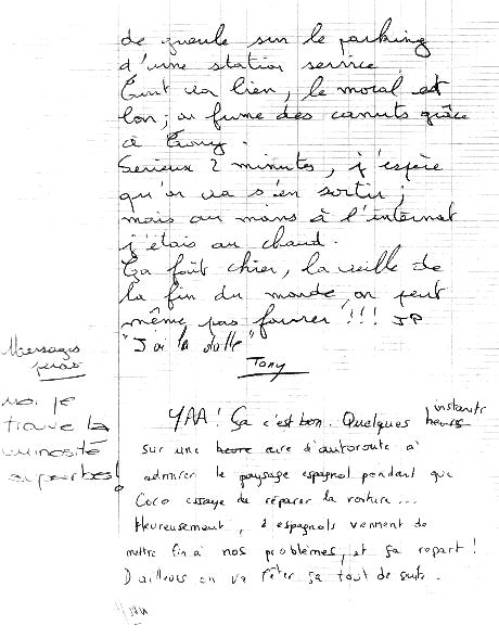 de gueule sur le parking
d'une station service.
Tout va bien, le moral est
bon; on fume des canuts grâce
à Tony.
Serieux 2 minutes, j'espère
qu'on va s'en sortir;
mais au moins à l'internat
j'étais au chaud.
Ça fait chier, la veille de
la fin du monde, on peut
même pas fourrer!!! JP
"J'ai la dalle"
Tony
Messages
perso
moi je
trouve la
luminosité
superbe!
YAA! Ça c'est bon. Quelques heures instants
sur une heure aire d'autoroute à
admirer le paysage espagnol pendant que
Coco essaye de réparer la voiture...
Heureusement, 2 espagnols viennent de
mettre fin à nos problèmes, et ça repart!
D'ailleurs on va fêter ça tout de suite.